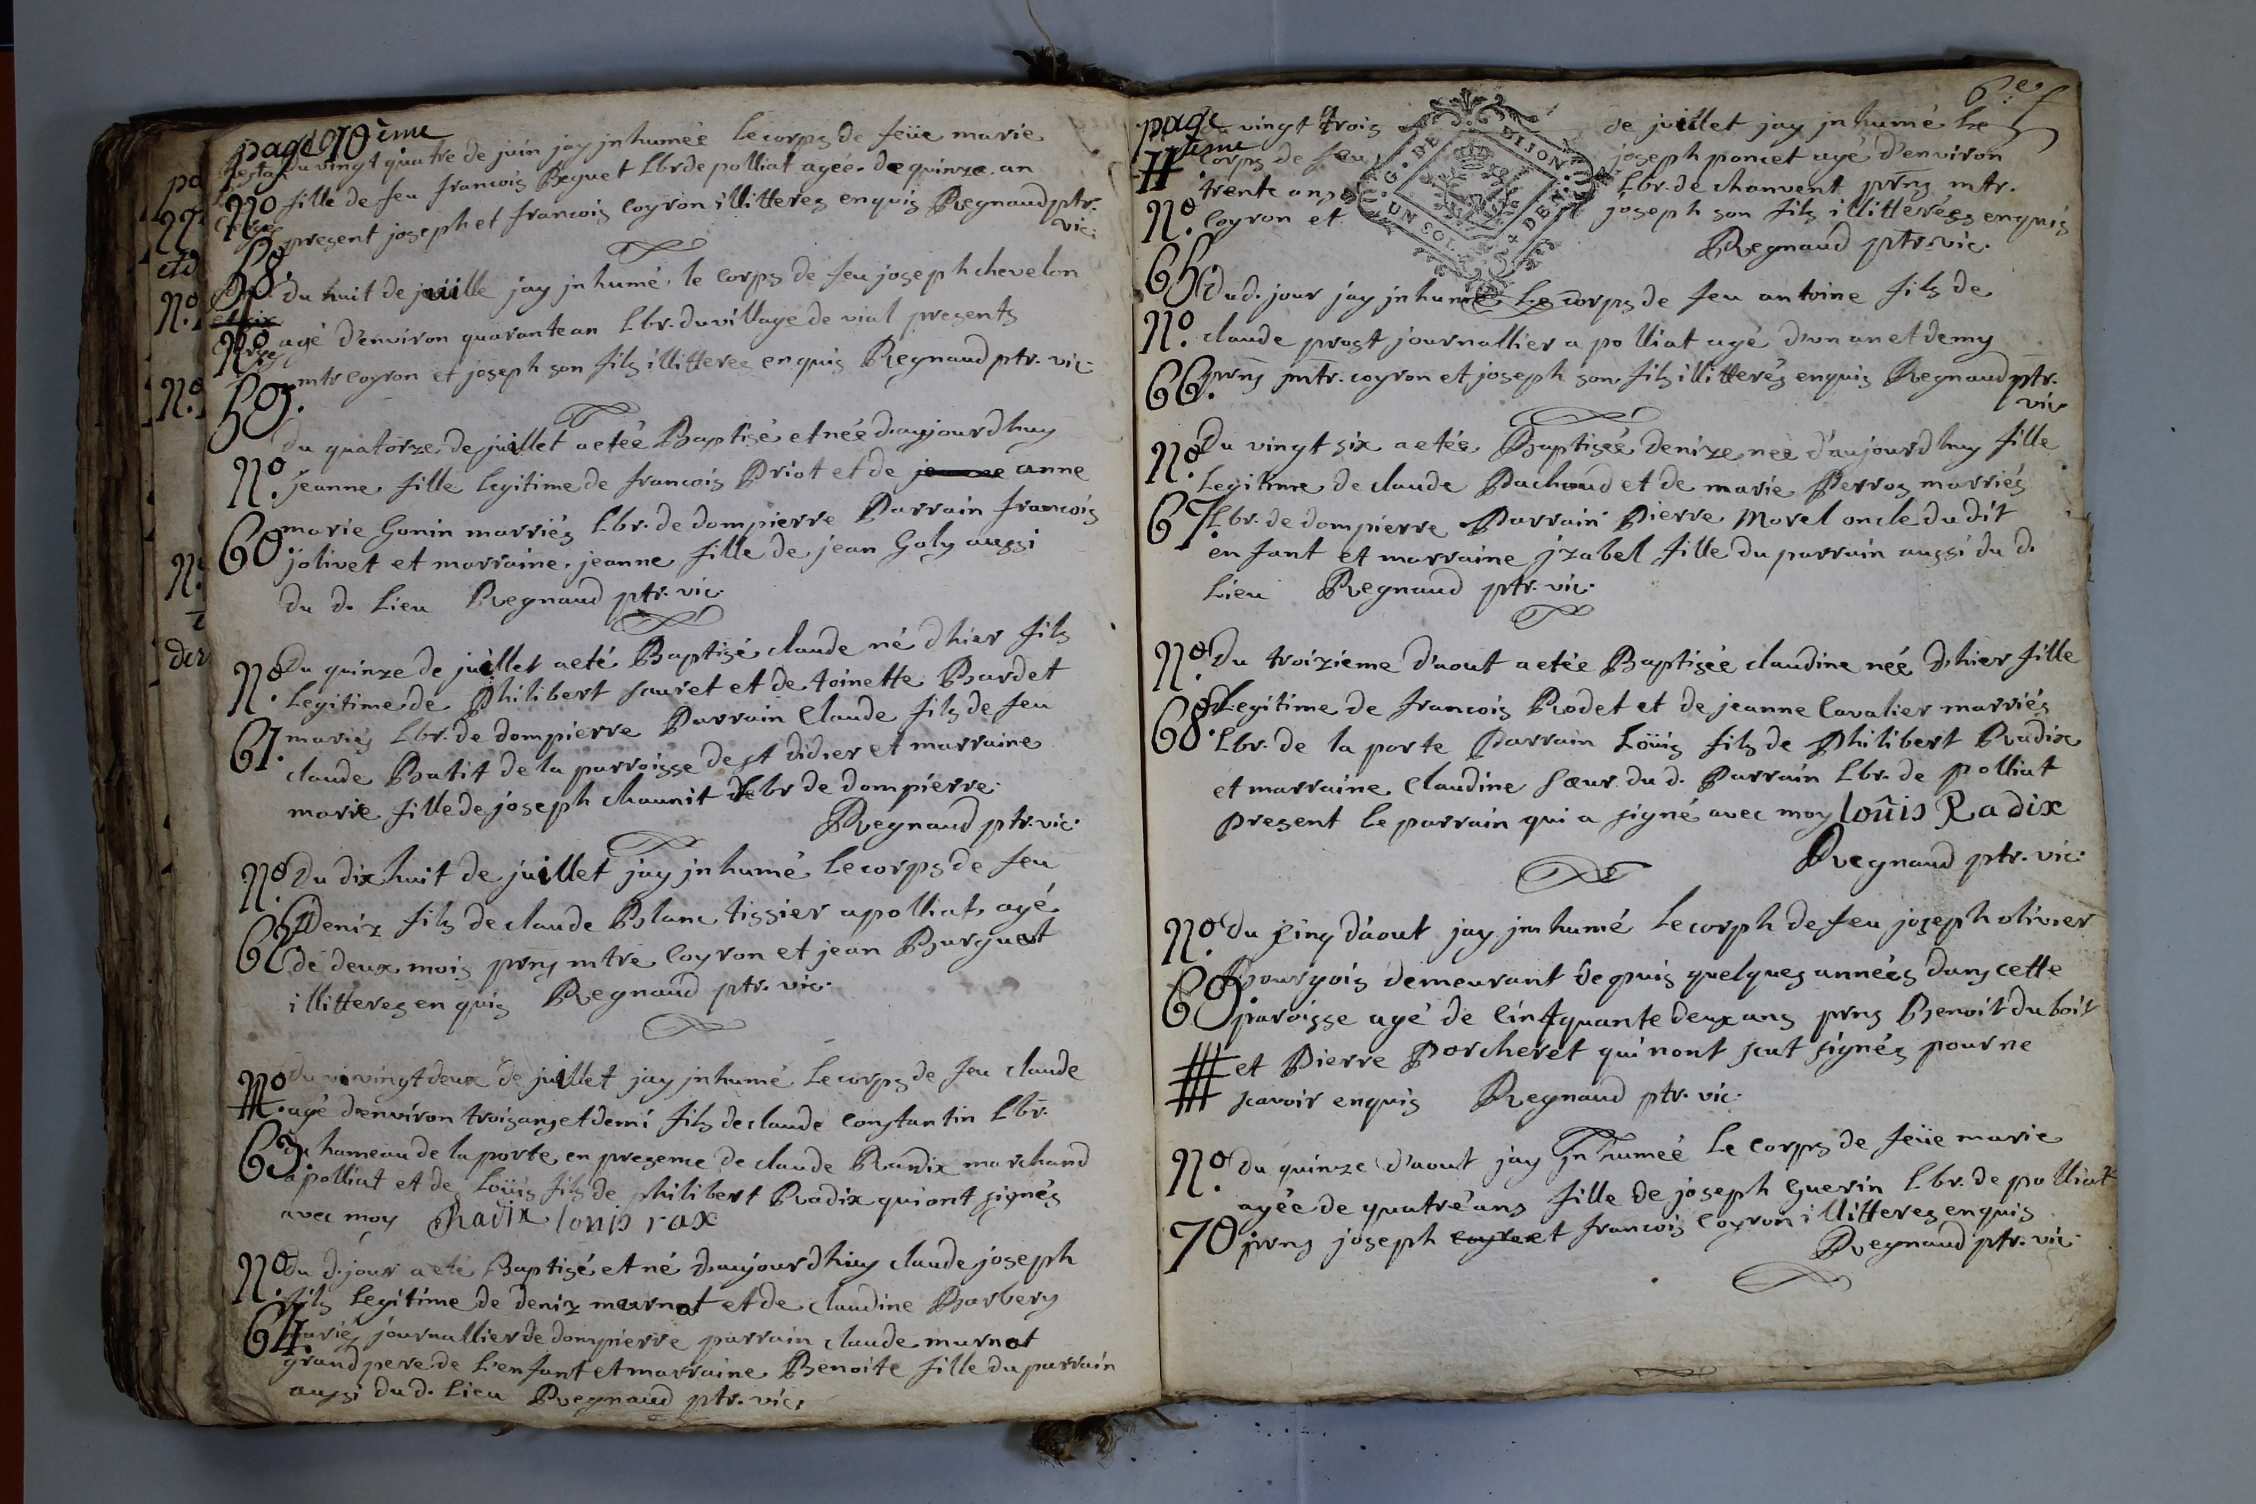 page 10ème
du vingt quatre de juin jay jnhumée le corps de feüe marie
No fille de feu francois Beguet Lbr de polliat agée de quinze an
present joseph et francois coyron illitteres enquis Regnaud ptr.
vic:
58.
du huit de juille jay jnhumé le corps de feu joseph chevelon
No agé d'environ quarante an Lbr. du village de vial presents
mtr coyron et joseph son fils illitteres enquis Regnaud ptr. vic:
59.
du quatorze de juillet a etéé Baptisé et néé daujourdhuy
No. jeanne fille legitime de francois Priot et de jeanne anne
marie Gonin marriés Lbr. de dompierre Parrain francois
60. jolivet et marraine jeanne fille de jean Goly aussi
du d. Lieu Regnaud ptr. vic:
No. Du quinze de juillet a eté Baptisé claude né dhier fils
Legitime de Philibert sauret et de toinette Bardet
61. mariés Lbr. de dompierre Parrain Claude fils de feu
claude Batit de la parroisse de st didier et marraine
marie fille de joseph chaunit Lbr de dompierre
Regnaud ptr. vic:
No. Du dix huit de juillet jay jnhumé Le corps de feu
62. Deniz fils de claude Blanc tissier a polliat agé
de deux mois prns mtre Coyron et jean Burguet
illitteres enquis Regnaud ptr. vic:
No. du vingt deux de juillet jay jnhumé Le corps de feu claude
agé denviron trois ans et demi fils de claude Constantin Lbr.
63. du hameau de la porte en presence de claude Radix marchand
a polliat et de Loüis fils de philibert Radix qui ont signés
avec moy Radix louis rax
No. du d. jour a eté Baptisé et né daujourdhuy claude joseph
fils Legitime de deniz murnat et de claudine Barbery
64. mariés journallier de dompierre parrain claude murnat
grand pere de L'enfant et marraine Benoite fille du parrain
aussi du d. Lieu Regnaud ptr. vic:
page 11ème
6e f
du vingt trois de juillet jay jnhumé Le
corps de feu joseph poncet agé d'environ
trente ans Lbr. de chanvent prns mtr.
No. Coyron et joseph son fils illitteréss enquis
Regnaud ptr. vic.
G. DE DIJON
UN SOL 4 DEN.
65.
du d. jour jay jnhumé Le corps de feu antoine fils de
No. claude prost journallier a polliat agé d'un an et demy
66. prns mtr. coyron et joseph son fils illitterés enquis Regnaud ptr.
vic
No. Du vingt six a etéé Baptiséé denize néé d'aujourdhuy fille
Legitime de claude Pachoud et de marie Perros marriés
67. Lbr. de dompierre Parrain Pierre Morel oncle du dit
enfant et marraine jzabel fille du parrain aussi du d.
Lieu Regnaud ptr. vic:
No. du troizieme d'aout a etéé Baptiséé claudine néé dhier fille
Legitime de francois Rodet et de jeanne Cavalier marriés
68. Lbr. de la porte Parrain Loüis fils de Philibert Radix
et marraine Claudine sœur du d. Parrain Lbr. de polliat
present Le parrain qui a signé avec moy loüis Radix
Regnaud ptr. vic:
No. du cinq d'aout jay jnhumé Le corph de feu joseph olivier
69. Bourgois demeurant depuis quelques années dans cette
paroisse agé de cintquante deux ans prns Benoit du boit
et Pierre Porcheret qui nont scut signés pour ne
scavoir enquis Regnaud ptr. vic:
No. du quinze d'aout jay jnhumeé Le corps de feüe marie
agéé de quatré ans fille de joseph Guerin Lbr. de polliat
70 prns joseph coyron et francois coyron illitteres enquis
Regnaud ptr. vic: